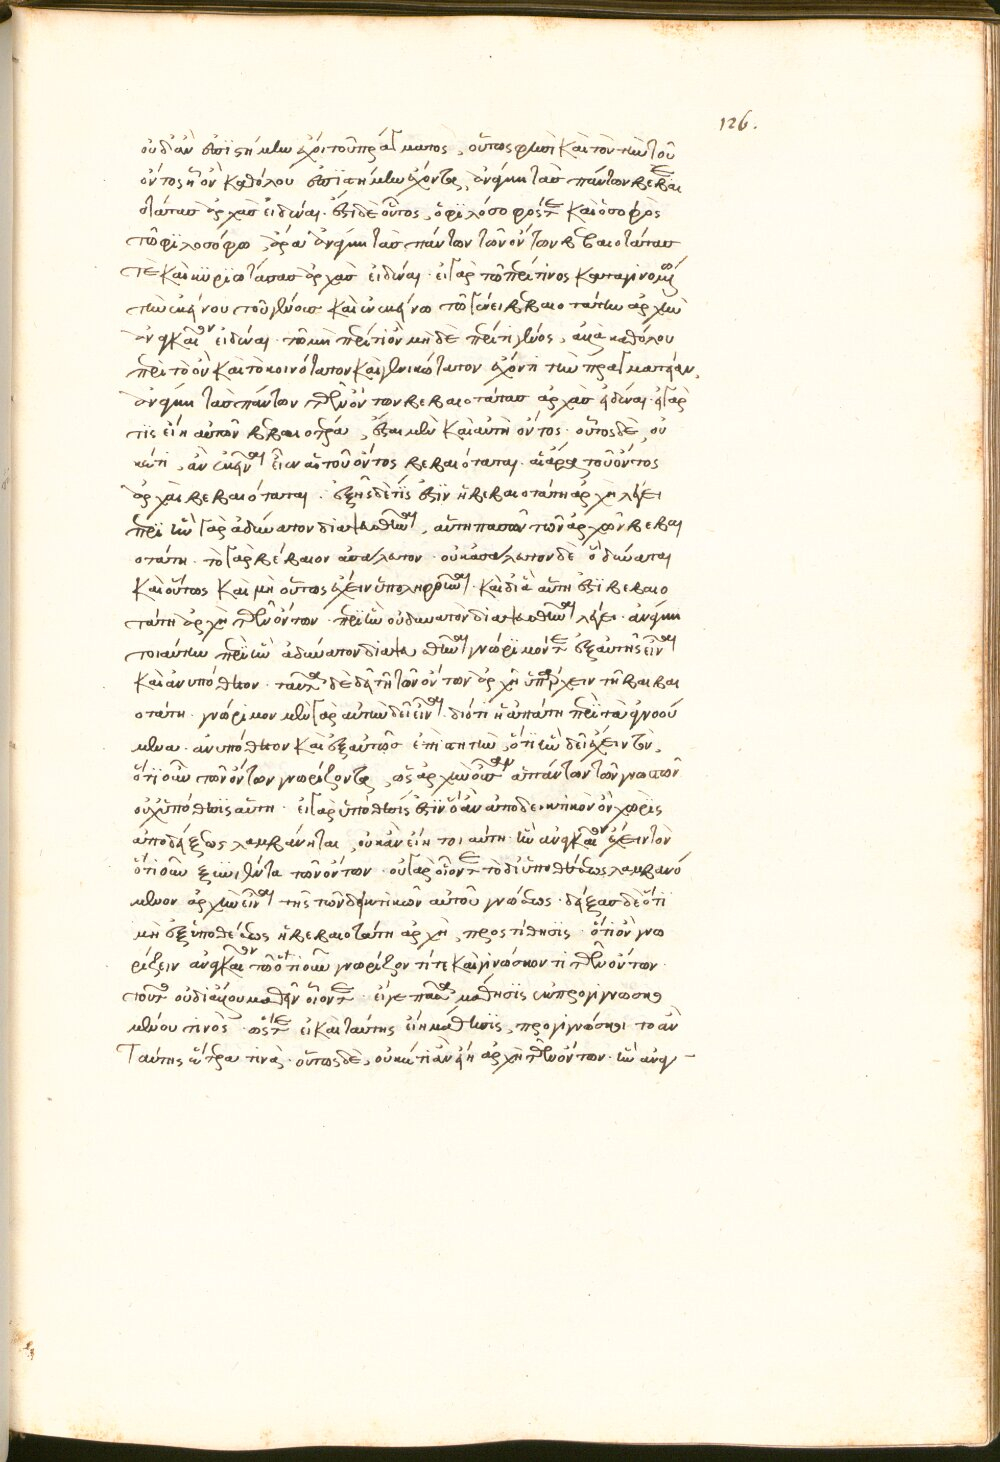 126.
οὐδ' ἂν ἐπιστήμην ἔχοι τοῦ πράγματος, οὕτως φησὶ καὶ τὸν τὴν τοῦ
ὄντος ᾗ ὂν καθόλου ἐπιστήμην ἔχοντα, ἀνάγκη τὰς πάντων βεβαι
οτάτας ἀρχὰς εἰδέναι. ἔστι δὲ οὗτος, ὁ φιλόσοφός τε καὶ ὁ σοφός
τῷ φιλοσόφῳ ἄρα ἀνάγκη τὰς πάντων τῶν ὄντων βεβαιοτάτας
τὲ καὶ κυριωτάτας ἀρχὰς εἰδέναι. εἰ γὰρ τῷ περί τινος
τὴν ἐκείνου τοῦ γένους καὶ ἐν ἐκείνῳ τῷ γένει βεβαιοτάτην ἀρχὴν
ἀναγκαῖον εἰδέναι. τῷ μὴ περί τι ὂν μηδὲ περί τι γένος, ἀλλὰ καθόλου
περὶ τὸ ὂν καὶ τὸ κοινότατον καὶ γενικώτατον ἔχοντι τὴν πραγματείαν,
ἀνάγκη τὰς πάντων τῶν ὄντων βεβαιοτάτας ἀρχὰς εἰδέναι. εἰ γάρ
τις εἴη αὐτῶν βεβαιοτέρα, ἔσται μὲν καὶ αὐτὴ ὄντος. οὕτως δὲ, οὐ
κέτι ἂν ἐκεῖναι εἶεν αἱ τοῦ ὄντος βεβαιόταται. αἱ ἄρα τοῦ ὄντος
ἀρχαὶ βεβαιόταται. ἑξῆς δὲ τίς ἐστιν ἡ βεβαιοτάτη ἀρχὴ λέγει
περὶ ἣν γὰρ ἀδύνατον διαψευσθῆναι, αὕτη πασῶν τῶν ἀρχῶν βεβαι
οτάτη. τὸ γὰρ βέβαιον ἀσάλευτον. οὐκ ἀσάλευτον δὲ ὃ δύναται
καὶ οὕτως καὶ μὴ οὕτως ἔχειν ὑποληφθῆναι. καὶ διὰ αὕτη ἐστὶ βεβαιο
τάτη ἀρχὴ τῶν ὄντων. περὶ ἣν οὐ δυνατὸν διαψευσθῆναι λέγει. ἀνάγκη
τοιαύτην περὶ ἣν ἀδύνατον διαψευσθῆναι γνώριμόν τε ἐξ αὐτῆς εἶναι
καὶ ἀνυπόθετον. ταῦτα δὲ δεῖ τῇ τῶν ὄντων ἀρχῇ ὑπάρχειν τῇ βεβαι
οτάτῃ. γνώριμον μὲν γὰρ αὐτὴν δεῖ εἶναι. διότι ἡ ἀπάτη περὶ τὰ ἀγνοού
μενα. ἀνυπόθετον καὶ ἐξ αὐτῆς ἐπιστητὴν, ὅτι ἣν δεῖ ἔχειν τὸν,
ὁτιοῦν τῶν ὄντων γνωρίζοντα, ὡς ἀρχὴν οὖσαν ἁπάντων τῶν γνωστῶν
οὐχ ὑπόθεσις αὕτη. εἰ γὰρ ὑπόθεσίς ἐστιν ὃ ἂν ἀποδεικτικὸν ὂν χωρὶς
ἀποδείξεως λαμβάνηται, οὐκ ἂν εἴη τοιαύτη ἣν ἀναγκαῖον ἔχειν τὸν
ὁτιοῦν ξυνιέντα τῶν ὄντων. οὐ γὰρ οἷόν τε τὸ δι' ὑποθέσεως λαμβανό
μενον ἀρχὴν εἶναι τῆς τῶν δεικτικῶν αὐτοῦ γνώσεως. δείξας δὲ ὅτι
μὴ ἐξ ὑποθέσεως ἡ βεβαιοτάτη ἀρχὴ, προστίθησιν. ὅτι ὃν γνω
ρίζειν ἀναγκαῖον τῷ ὁτιοῦν γνωρίζοντί τε καὶ γινώσκοντι τῶν ὄντων.
τοῦτο οὐδὲ ἄλλου μαθεῖν οἷόν τε. εἴγε πᾶσα μάθησις ἐκ προγιγνωσκο
μένου τινὸς. ὥστε εἰ καὶ ταύτης εἴη μάθησις, προγιγνώσκοι τὸ ἂν
ταύτης ἕτερα τινὰ. οὕτως δὲ, οὐκέτι ἂν εἴη ἀρχὴ τῶν ὄντων. ἣν ἀναγ-